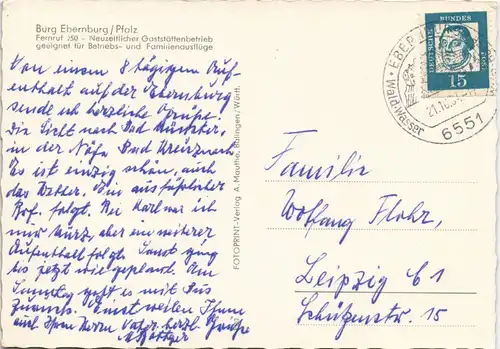 Burg Ebernburg/Pfalz
Fernruf 250 - Neuzeitlicher Gaststättenbetrieb
geeignet für Betriebs- und Familienausflüge
Von einem 8 tägigem Auf-
enthalt auf der Ebernburg
sende ich herzliche Grüße.
Die Sicht nach Bad Münster,
in der Nähe Bad Kreuznach.
Es ist einzig schön, auch
das Wetter. Ein ausführlicher
Brf. folgt. Bei Karl war ich
nur kurz, aber ein weiterer
Aufenthalt folgt. Sonst ging
bis jetzt wie geplant. Am
Samstag geht es mit Bus
zurück. Einstweilen Ihnen
auch Ihrem Herrn Vater herzl. Grüße
FOTOPRINT-Verlag A. Mauthe, Balingen, Württ.
DEUTSCHE BUNDESPOST
15
Wald u. Wasser
6551
Familie
Wolfgang Flohr,
Leipzig C1
Schützenstr. 15